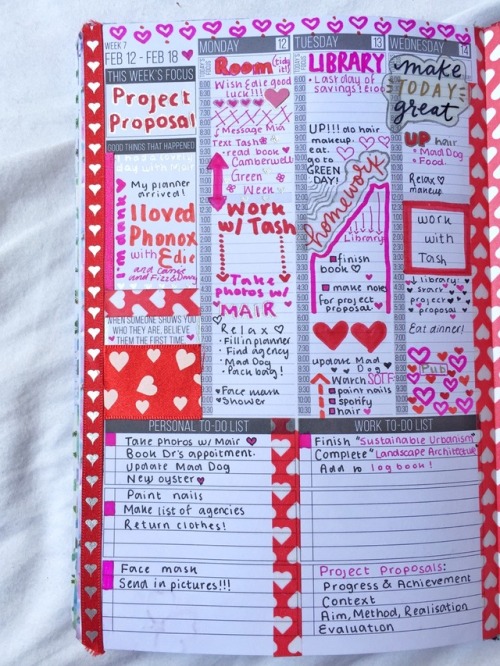 WEEK 7
FEB 12 - FEB 18
THIS WEEK'S FOCUS
Project
Proposal
GOOD THINGS THAT HAPPENED
I had a lovely
day with Mair
My planner
arrived!
I'm dank
I loved
Phonox
with Edie
and Carrie
WHEN SOMEONE SHOWS YOU
WHO THEY ARE, BELIEVE
THEM THE FIRST TIME
MONDAY 12
TODAY'S FOCUS
Room (tidy it!)
Wish Edie good
luck!!!
Message Mia
Text Tash
read book
Camberwell
Green
Week
Work
w/ Tash
Take
photos w/
MAIR
Relax
Fill in planner
Find agency
Mad Dog
Pack bag!
Face mask
Shower
TUESDAY 13
LIBRARY
Last day of
savings!
UP!!! do hair
makeup
eat.
go to
GREEN
DAY!
homework
Library
finish
book
make notes
for project
proposal
update Mad
Dog
Watch SOTF
paint nails
spotify
hair
WEDNESDAY 14
make
TODAY
great
UP hair
Mad Dog
Food
Relax
makeup
work
with
Tash
library:
project
proposal
Eat dinner!
Pub
PERSONAL TO-DO LIST
Take photos w/ Mair
Book Dr's appoitment.
Update Mad Dog
New oyster
Paint nails
Make list of agencies
Return clothes!
Face mask
Send in pictures!!!
WORK TO-DO LIST
Finish "Sustainable Urbanism"
Complete "Landscape Architecture
Add to log book!
Project Proposals:
Progress & Achievement
Context
Aim, Method, Realisation
Evaluation